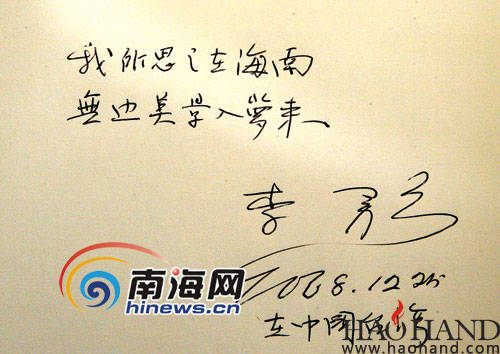 我所思之在海南
無边美景入夢来
李
2008.12.25
在中国
南海网
hinews.cn
HAOHAND
www.haohand.com